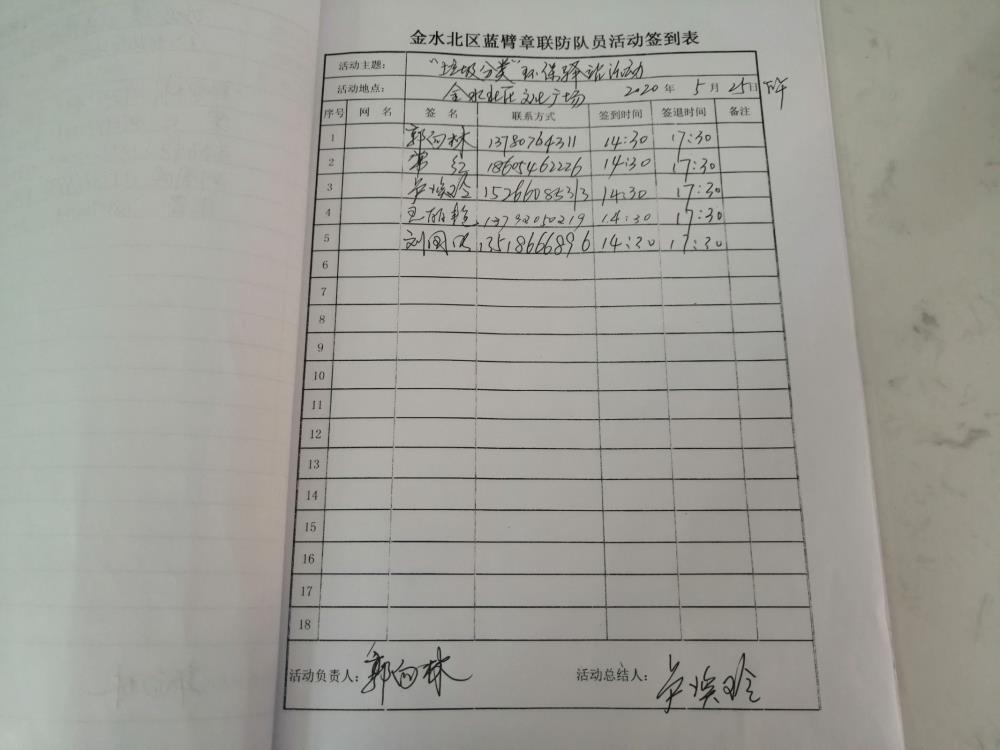 金水北区蓝臂章联防队员活动签到表
活动主题: "垃圾分类"环保驿站活动
活动地点: 金水北区文化广场 2020年 5月 25日 下午
序号 网 名 签 名 联系方式 签到时间 签退时间 备注
1 郭向林 13780764311 14:30 17:30
2 常红 18605462226 14:30 17:30
3 15266085313 14:30 17:30
4 王丽艳 13792050219 14:30 17:30
5 刘国 13518666896 14:30 17:30
6
7
8
9
10
11
12
13
14
15
16
17
18
活动负责人: 郭向林 活动总结人: